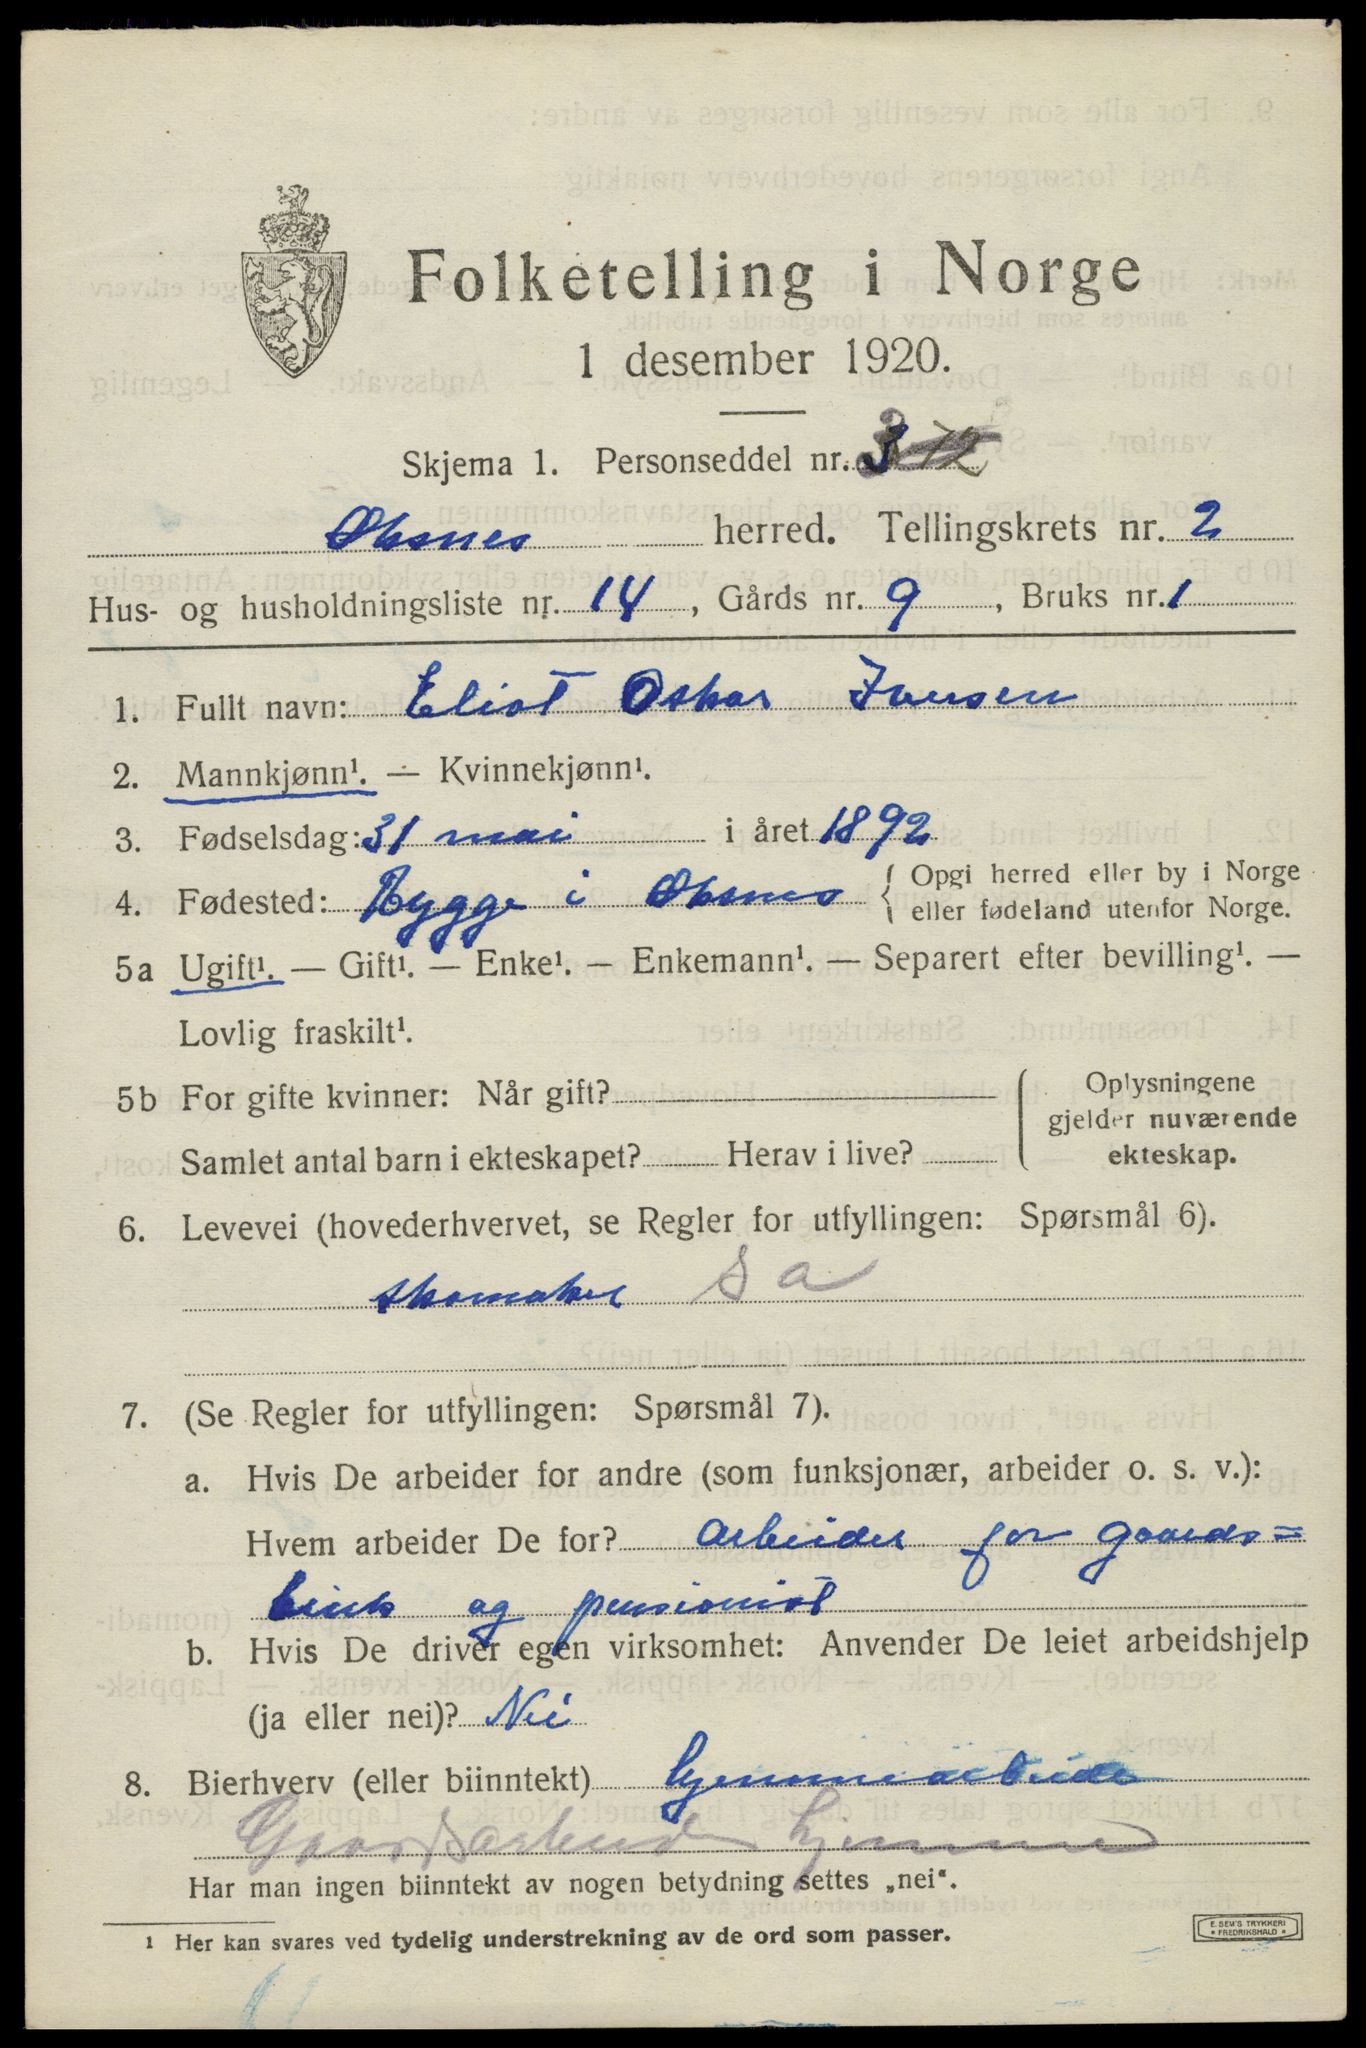 Folketelling i Norge
1 desember 1920.
Skjema 1. Personseddel nr. 3
Øksnes herred. Tellingskrets nr. 2
Hus- og husholdningsliste nr. 14, Gårds nr. 9, Bruks nr. 1
1. Fullt navn: Eliot Oskar Iversen
2. Mannkjønn¹. — Kvinnekjønn¹.
3. Fødselsdag: 31 mai i året 1892
4. Fødested: Rygge i Øksnes { Opgi herred eller by i Norge
eller fødeland utenfor Norge.
5a Ugift¹. — Gift¹. — Enke¹. — Enkemann¹. — Separert efter bevilling¹. —
Lovlig fraskilt¹.
5b For gifte kvinner: Når gift?
Samlet antal barn i ekteskapet? Herav i live?
Oplysningene
gjelder nuværende
ekteskap.
6. Levevei (hovederhvervet, se Regler for utfyllingen: Spørsmål 6).
skomaker s a
7. (Se Regler for utfyllingen: Spørsmål 7).
a. Hvis De arbeider for andre (som funksjonær, arbeider o. s. v.):
Hvem arbeider De for? arbeider for gaards=
bruk og pensionist
b. Hvis De driver egen virksomhet: Anvender De leiet arbeidshjelp
(ja eller nei)? Nei
8. Bierhverv (eller biinntekt) hjemmearbeide
Gaardsarbeide hjemme
Har man ingen biinntekt av nogen betydning settes „nei“.
1 Her kan svares ved tydelig understrekning av de ord som passer.
E. SEM'S TRYKKERI
* FREDRIKSHALD *